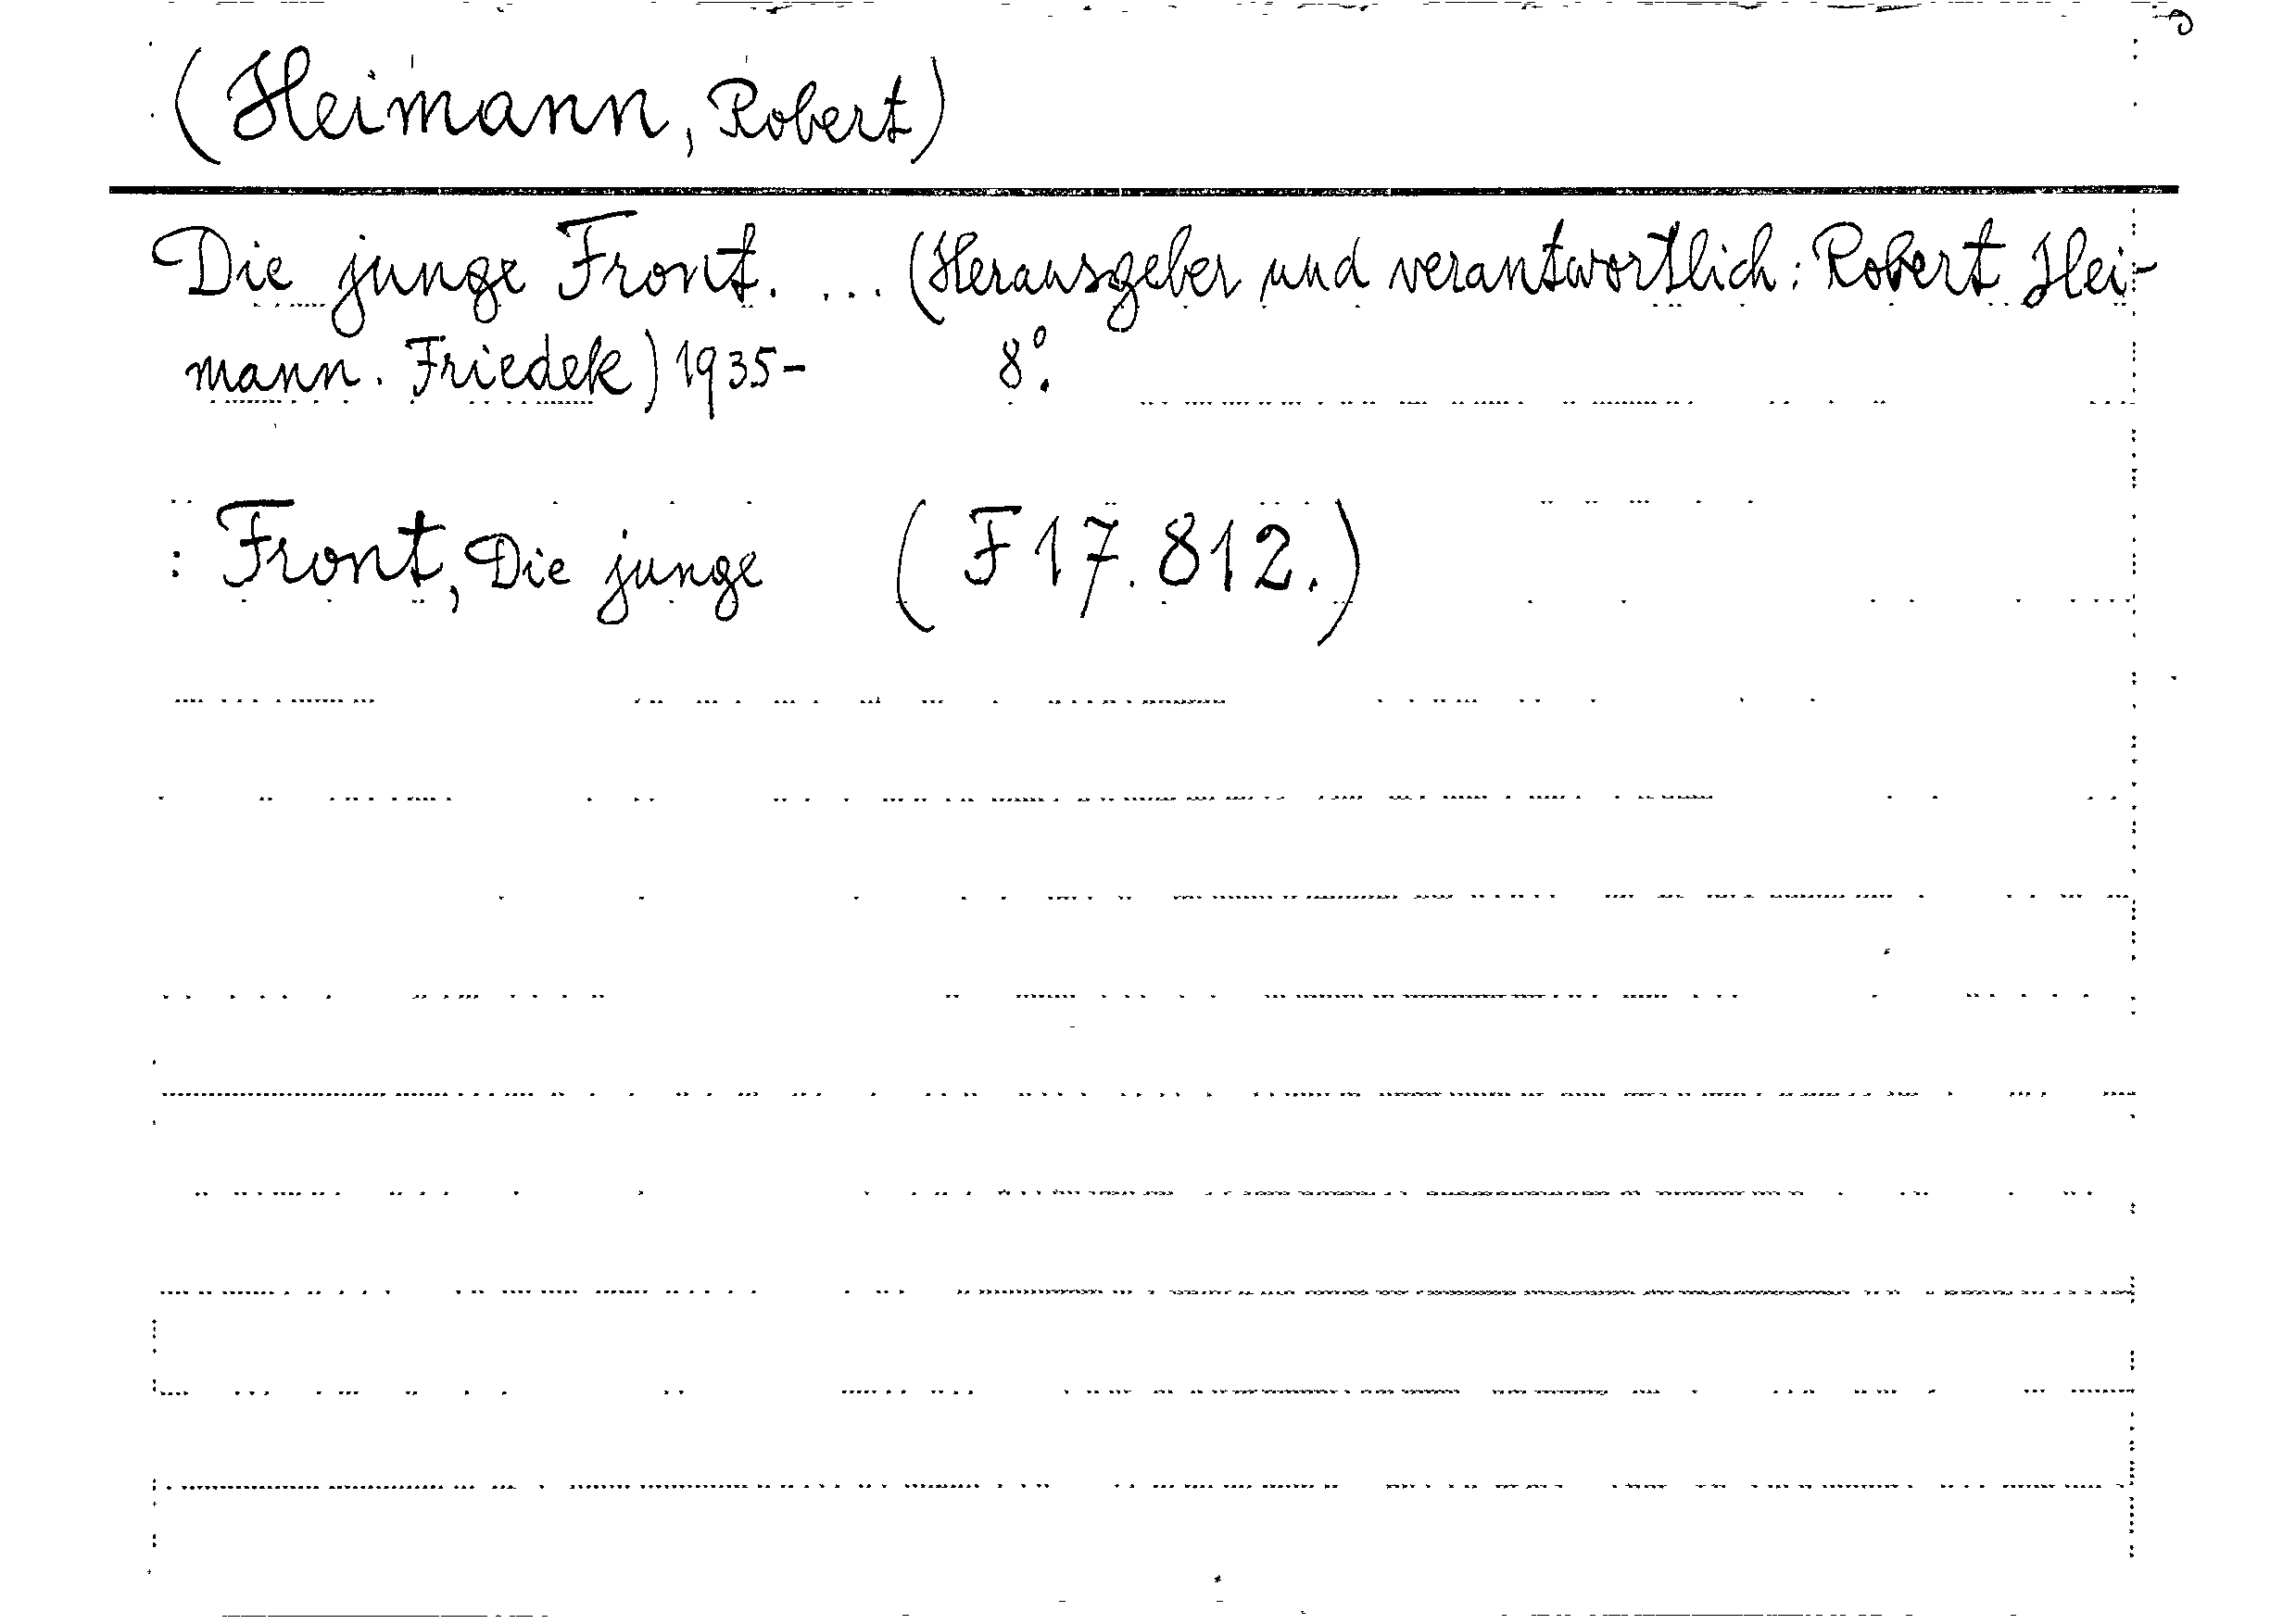 (Heimann, Robert)
Die junge Front. ... (Herausgeber und verantwortlich: Robert Hei-
mann. Friedek) 1935-   8°.
: Front, Die junge   (F 17.812.)